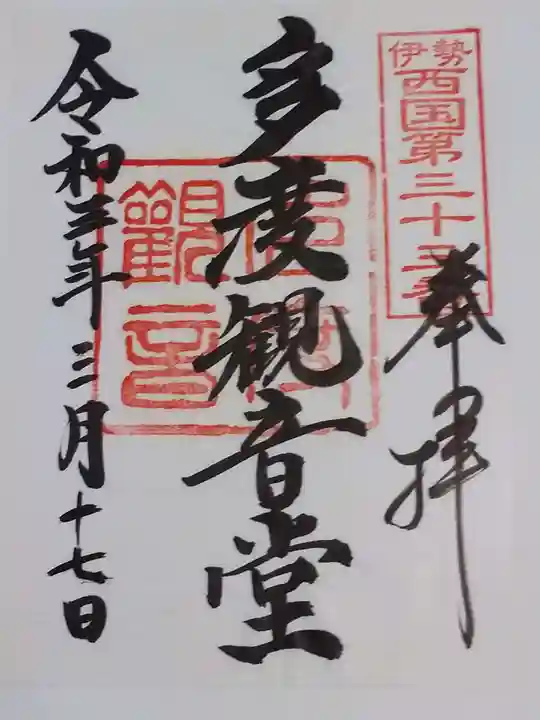 伊勢
西国第三十
奉拝
多度観音堂
觀音
令和三年三月十七日